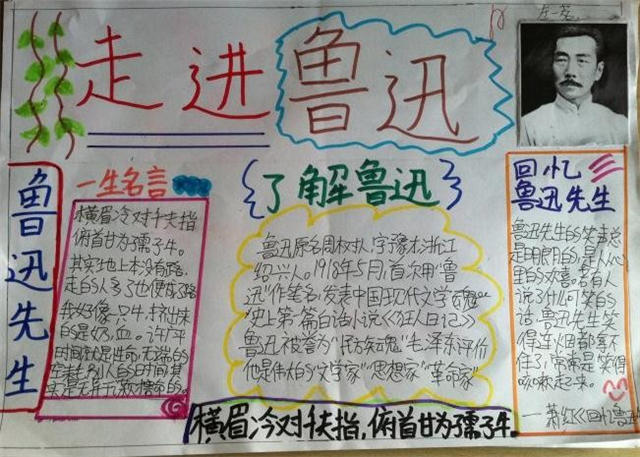 走进鲁迅
鲁迅先生
一生名言
横眉冷对千夫指
俯首甘为孺子牛。
其实地上本没有路,
走的人多了也便成了路
我好像一只牛,挤出来
的是奶,血。许广平
时间就是生命,无端的
实是无异于谋财害命的。
了解鲁迅
鲁迅原名周树人,字豫才,浙江
绍兴人。1918年5月,首次用"鲁
迅"作笔名,发表中国现代文学
史上第一篇白话小说《狂人日记》
鲁迅被誉为"民族魂"毛泽东评价
他是伟大的"文学家""思想家""革命家"
横眉冷对千夫指,俯首甘为孺子牛。
回忆
鲁迅先生
鲁迅先生的笑声总
是明朗的,是从心
里的欢喜。若有人
说了什么可笑的
话,鲁迅先生笑
得连烟都拿不
住了,常常是笑得
咳嗽起来。
—萧红《回忆鲁迅